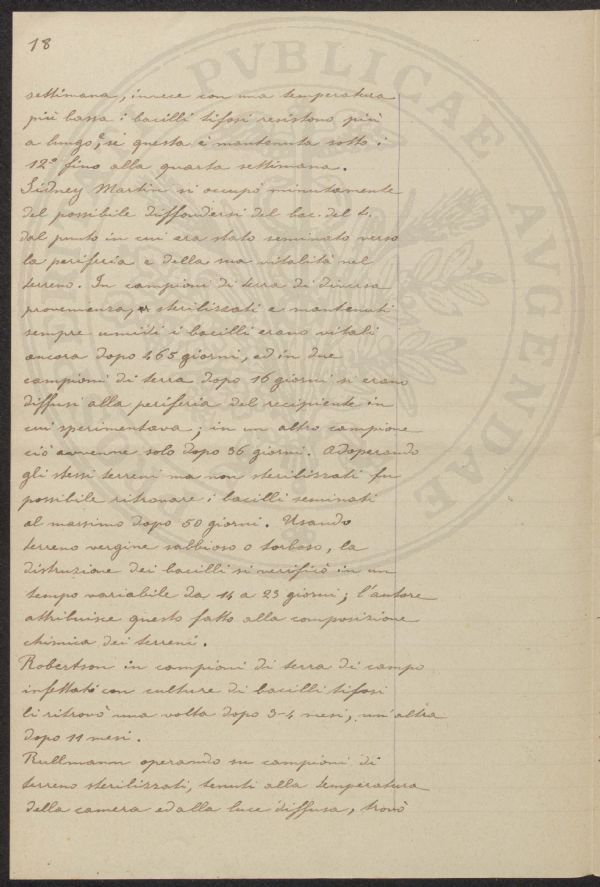 18
settimana, invece con una temperatura
più bassa i bacilli tifosi resistono più
a lungo, e se questa è mantenuta sotto i
12° fino alla quarta settimana.
Sidney Martin si occupò minutamente
del possibile diffondersi del bac. del t.
dal punto in cui era stato seminato verso
la periferia e della sua vitalità nel
terreno. In campioni di terra di diversa
provenienza, sterilizzati e mantenuti
sempre umidi i bacilli erano vitali
ancora dopo 465 giorni, ed in due
campioni di terra dopo 16 giorni si erano
diffusi alla periferia del recipiente in
cui sperimentava; in un altro campione
ciò avvenne solo dopo 36 giorni. Adoperando
gli stessi terreni ma non sterilizzati fu
possibile ritrovare i bacilli seminati
al massimo dopo 50 giorni. Usando
terreno vergine sabbioso o torboso, la
distruzione dei bacilli si verificò in un
tempo variabile da 14 a 23 giorni; l'autore
attribuisce questo fatto alla composizione
chimica dei terreni.
Robertson in campioni di terra di campo
infettati con culture di bacilli tifosi
li ritrovò una volta dopo 3-4 mesi, un'altra
dopo 11 mesi.
Rullmann operando su campioni di
terreno sterilizzati, tenuti alla temperatura
della camera ed alla luce diffusa, trovò
PVBLICAE
AVGENDAE